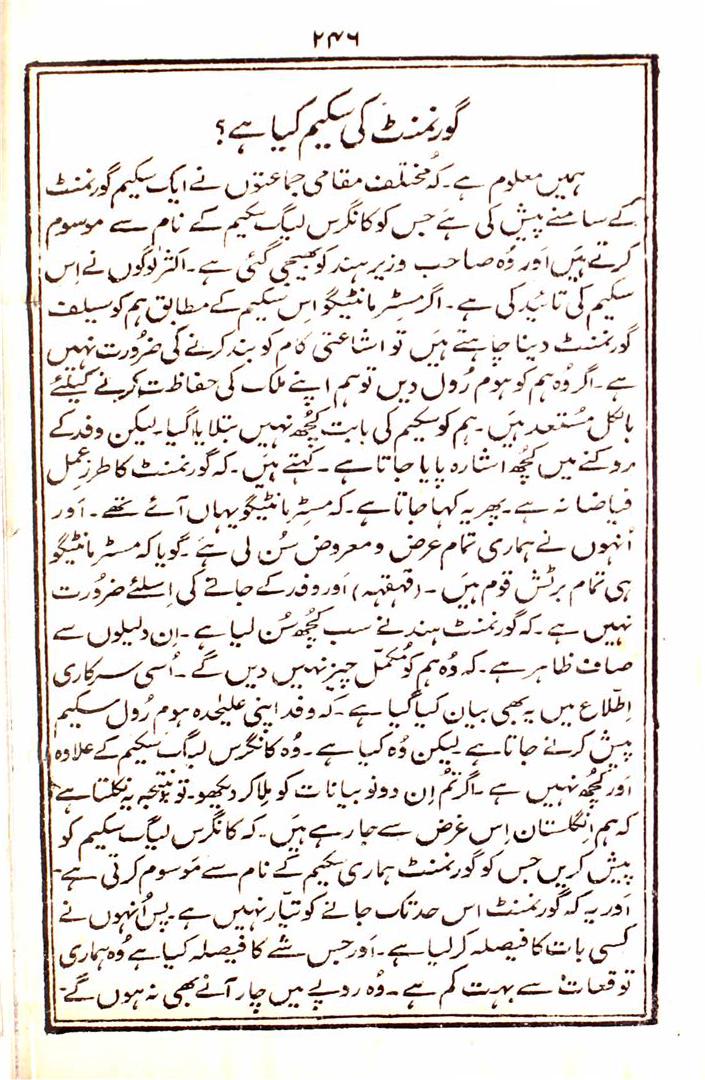 ۲۴۶
گورنمنٹ کی سکیم کیا ہے؟
ہمیں معلوم ہے۔ کہ مختلف مقامی جماعتوں نے ایک سکیم گورنمنٹ
کے سامنے پیش کی ہے جس کو کانگرس لیگ سکیم کے نام سے موسوم
کرتے ہیں اور وُہ صاحب وزیر ہند کو بھیجی گئی ہے۔ اکثر لوگوں نے اِس
سکیم کی تائید کی ہے۔ اگر مسٹر مانٹیگو اِس سکیم کے مطابق ہم کو سیلف
گورنمنٹ دینا چاہتے ہیں تو اشاعتی کام کو بند کرنے کی ضرُورت نہیں
ہے۔ اگر وُہ ہم کو ہوم رُول دیں تو ہم اپنے ملک کی حفاظت کرنے کیلئے
بالکل مُستعد ہیں۔ ہم کو سکیم کی بابت کچُھ نہیں بتلایا گیا۔ لیکن وفد کے
روکنے میں کچُھ اشارہ پایا جاتا ہے۔ کہتے ہیں۔ کہ گورنمنٹ کا طرزِ عمل
فیاضانہ ہے۔ پھر یہ کہا جاتا ہے۔ کہ مسٹر مانٹیگو یہاں آئے تھے۔ اَور
اُنہوں نے ہماری تمام عرض و معروض سُن لی ہے۔ گویا کہ مسٹر مانٹیگو
ہی تمام برٹش قوم ہیں۔ (قہقہہ) اَور وفد کے جانے کی اِسلئے ضرُورت
نہیں ہے۔ کہ گورنمنٹ ہند نے سب کچُھ سُن لیا ہے۔ اِن دلیلوں سے
صاف ظاہر ہے۔ کہ وُہ ہم کو مُکمّل چیز نہیں دیں گے۔ اُسی سرکاری
اِطّلاع میں یہ بھی بیان کیا گیا ہے۔ کہ وفد اپنی علیٰحدہ ہوم رُول سکیم
پیش کرنے جاتا ہے لیکن وُہ کیا ہے۔ وُہ کانگرس لیگ سکیم کے علاوہ
اَور کچُھ نہیں ہے۔ اگر تُم اِن دونو بیانات کو مِلا کر دیکھو۔ تو نتیجہ یہ نکلتا ہے
کہ ہم اِنگلستان اِس غرض سے جا رہے ہیں۔ کہ کانگرس لیگ سکیم کو
پیش کریں جس کو گورنمنٹ ہماری سکیم کے نام سے مَوسوم کرتی ہے۔
اَور یہ کہ گورنمنٹ اس حد تک جانے کو تیّار نہیں ہے۔ پس اُنہوں نے
کسی بات کا فیصلہ کر لیا ہے۔ اَور جس شے کا فیصلہ کیا ہے وُہ ہماری
توقعات سے بہت کم ہے۔ وُہ روپے میں چار آنے بھی نہ ہوں گے۔